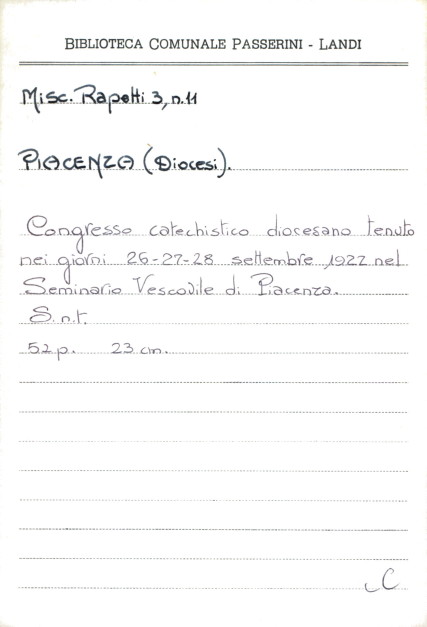 BIBLIOTECA COMUNALE PASSERINI - LANDI
Misc. Rapetti 3, n. 11
PIACENZA (Diocesi).
Congresso catechistico diocesano tenuto
nei giorni 26-27-28 settembre 1922 nel
Seminario Vescovile di Piacenza.
S. n. t.
52 p. 23 cm.
C